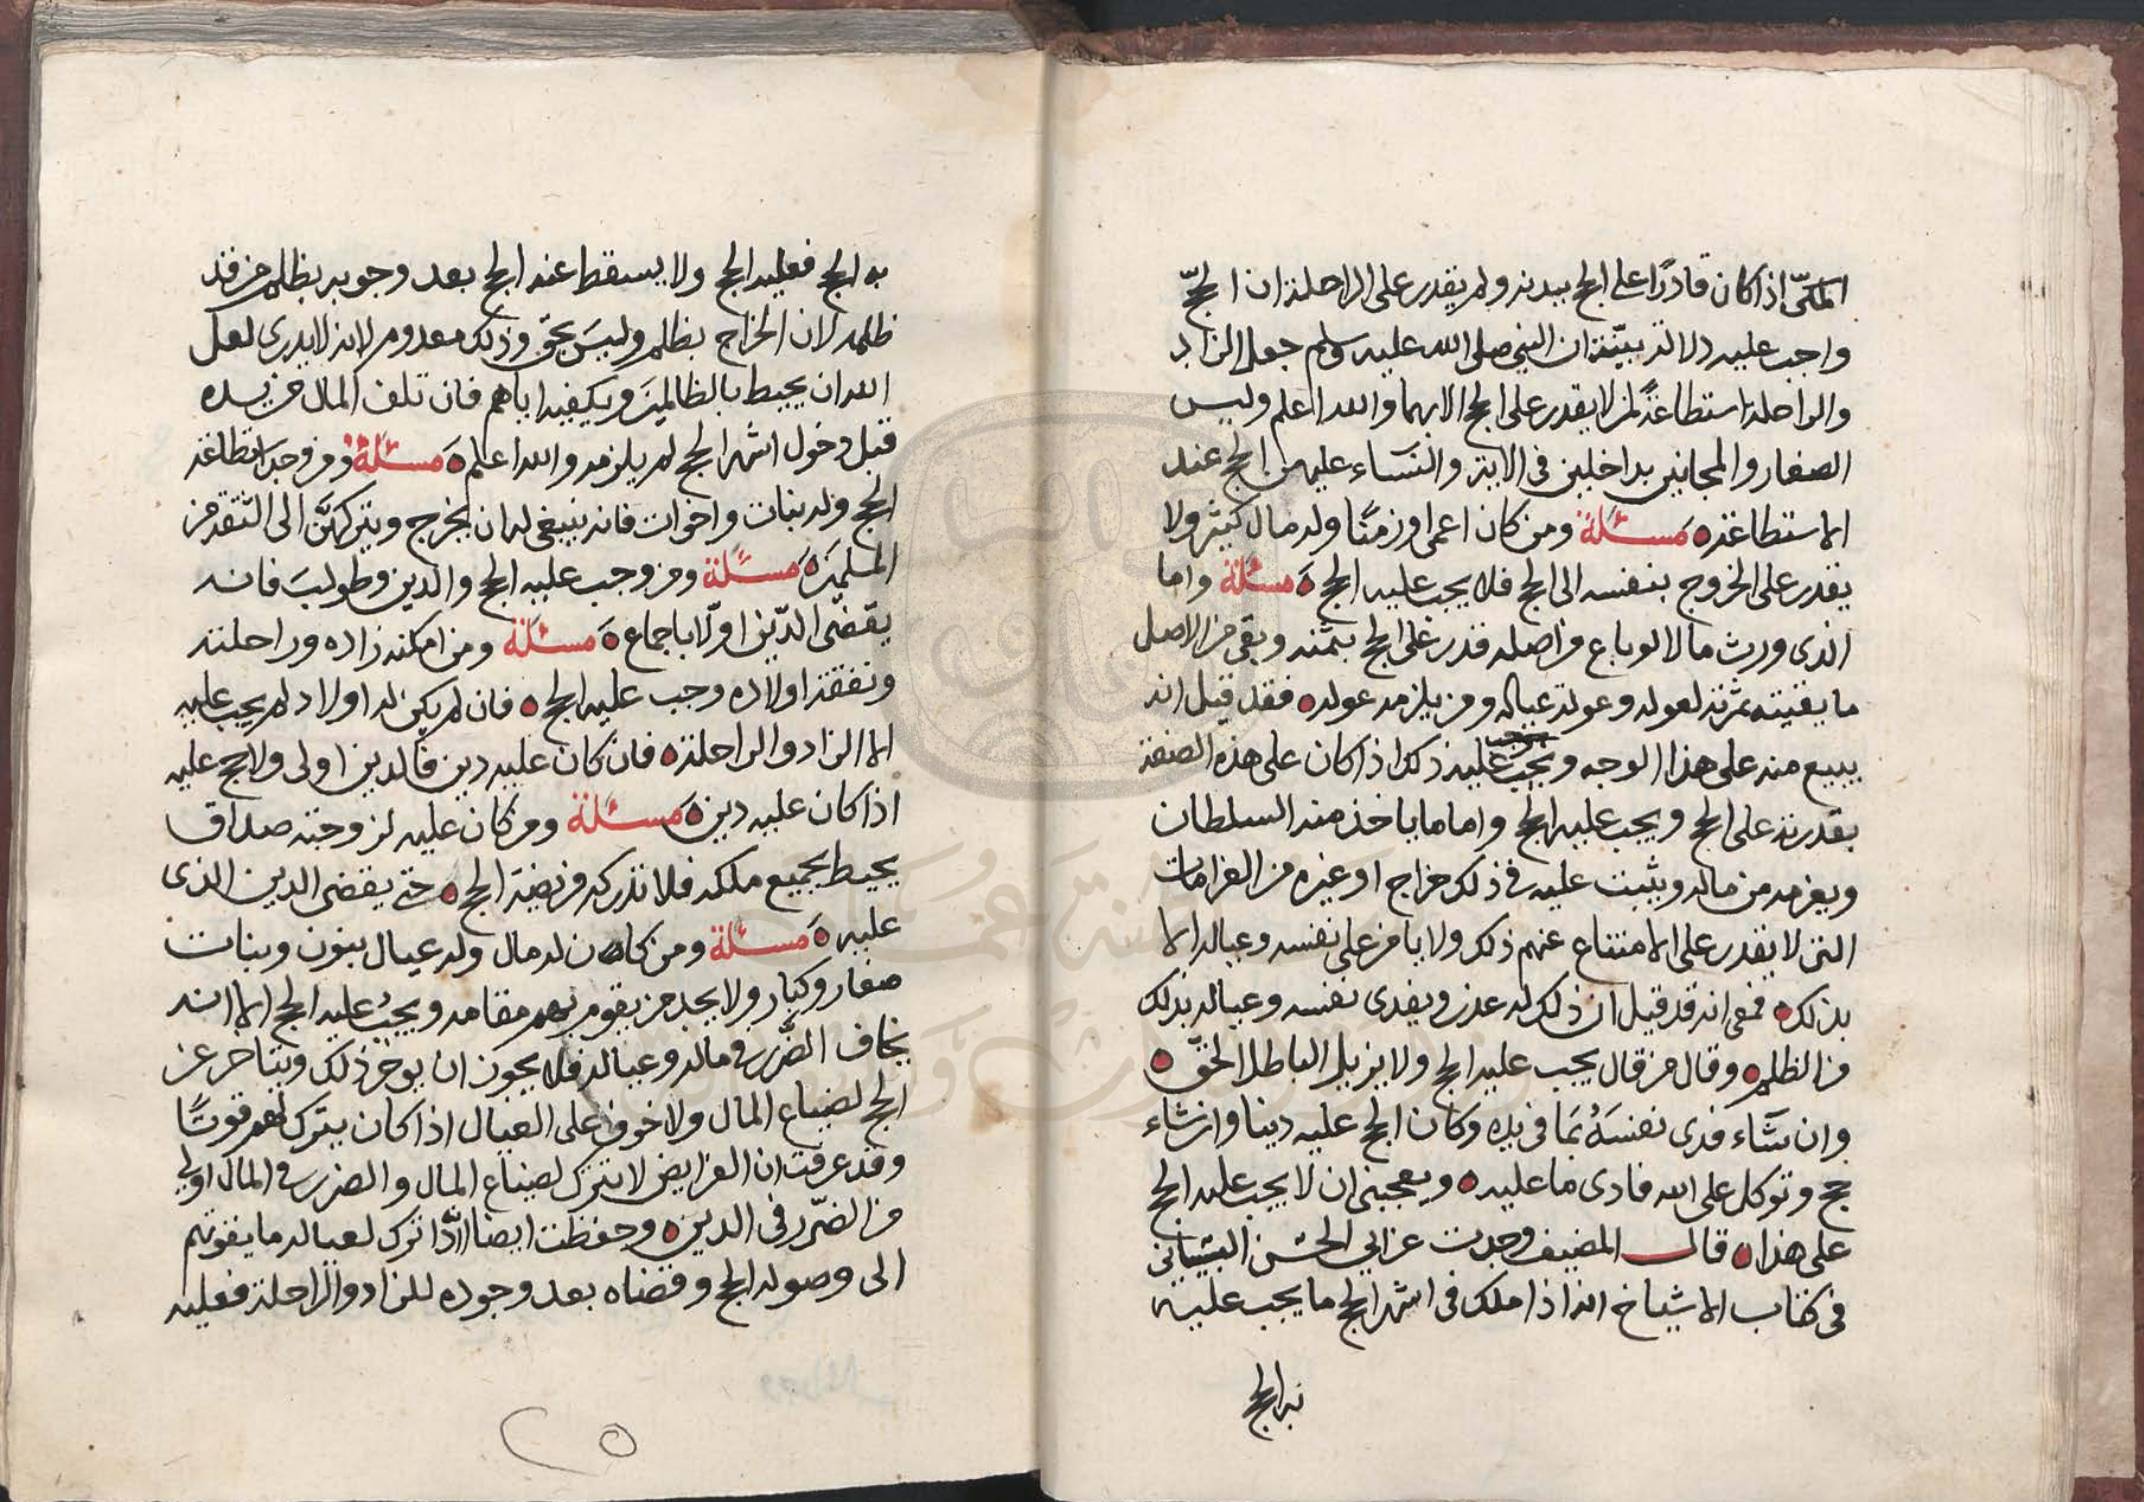 المكيّ اذا كان قادرًا على الحج ببدنه ولم يقدر على الراحلة ان الحجّ
واجب عليه دلالة بيّنة ان النبي صلى الله عليه وسلم جعل الزاد
والراحلة استطاعةً لمن لا يقدر على الحج الا بهما والله اعلم وليس
الصغار والمجانين بداخلين في الاية والنسَاء عليهن الحج عند
الاستطاعة ه مَسئلة ومن كان اعمى او زمنًا وله مال كثير ولا
يقدر على الخروج بنفسه الى الحج فلا يجب عليه الحج ه مَسئلة واما
الذي ورث مالا لو باع من اصله قدر على الحج بثمنه وبقي من الاصل
ما بقيته ثمرته لعوله وعولة عياله ومن يلزمه عوله ه فقد قيل انه
يبيع منه على هذا الوجه ويجب عليه ذلك اذا كان على هذه الصفة
بقدرته على الحج ويجب عليه الحج واما ما ياخذ منه السلطان
ويغرمه من ماله ويثبت عليه في ذلك خراج او غيره من الغرامات
التي لا يقدر على الامتناع عنهم ذلك ولا يامن على نفسه وعياله الا
بذلك ه فمعي انه قد قيل ان ذلك له عذر ويفدى نفسه وعياله بذلك
من الظلم ه وقال من قال يجب عليه الحج ولا يزيل الباطل الحقّ ه
وان شَاء فدى نفسَهُ بمَا في يده وكان الحج عليه دينا وان شاء
حج وتوكل على الله فادى ما عليه ه ويعجبني ان لا يجب عليه الحج
على هذا ه قال المضيف وجدت عن ابي الحسَن البسَياني
في كتاب الاشياخ انه اذا ملك في اشهر الحج ما يجب عليه
به الحج
به الحج فعليه الحج ولا يسقط عنه الحج بعد وجوبه بظلم من قد
ظلمه لان الخراج بظلم وليسَ بحق وذلك معدوم لانه لا يدرى لعل
الله ان يحيط بالظالمينَ ويكفيه اياهم فان تلف المال من يده
قبل دخول اشهر الحج لم يلزمه والله اعلم ه مَسئلة ومن وجد استطاعة
الحج وله بنات واخوات فانه ينبغي له ان يخرج ويتركهنّ الى الثقة من
المسلمين ه مَسئلة ومن وجب عليه الحج والدين وطولبَ فانه
يقضى الدّين اولًا باجماع ه مَسئلة ومن امكنه زاده وراحلته
ونفقة اولاده وجب عليه الحج ه فان لم يكن له اولاد لم يجب عليه
الا الزاد والراحلة ه فان كان عليه دين فالدين اولى ولا حج عليه
اذا كان عليه دين ه مَسئلة ومن كان عليه لزوجته صداق
يحيط بجميع ملكه فلا تدركه فريضة الحج ه حتى يقضى الدين الذي
عليه ه مَسئلة ومن كان له مال وله عيال بنون وبنات
صغار وكبار ولا يجد من يقوم بهم مقامه ويجبُ عليه الحج الا انه
يخاف الضّرر في ماله وعياله فلا يجوز ان يوخر ذلك ويتاخر عن
الحج لضياع المال ولا خوف على العيال اذا كان يترك لهم قوتًا
وقد عرفت ان الفرايض لا تترك لضياع المال والضرر في المال اولى
من الضّرر في الدين ه وحفظت ايضا اذا ترك لعياله ما يقوتهم
الى وصوله الحج وقضاه بعد وجوده للزاد والراحلة فعليه